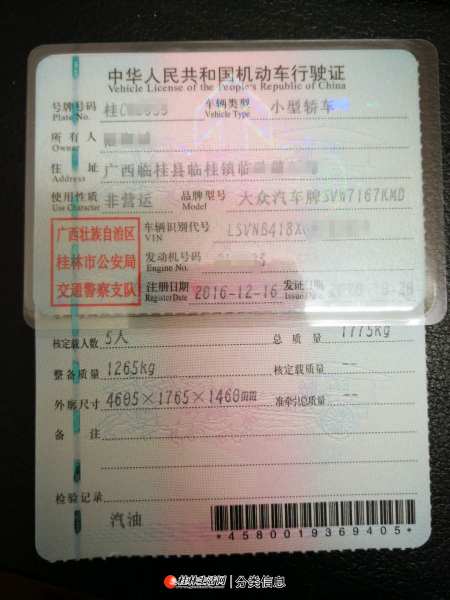 中华人民共和国机动车行驶证
Vehicle License of the People's Republic of China
号牌号码 桂C 车辆类型 小型轿车
Plate No. Vehicle Type
所有人
Owner
住址 广西临桂县临桂镇临
Address
使用性质 非营运 品牌型号 大众汽车牌SVW7167KMD
Use Character Model
广西壮族自治区
桂林市公安局
交通警察支队
车辆识别代号 LSVNB418X
VIN
发动机号码
Engine No.
注册日期 2016-12-16 发证日期
Register Date Issue Date
核定载人数 5人 总质量 1775kg
整备质量 1265kg 核定载质量 --
外廓尺寸 4605×1765×1460mm 准牵引总质量 --
备注
检验记录
汽油
*4580019369405*
桂林生活网 | 分类信息